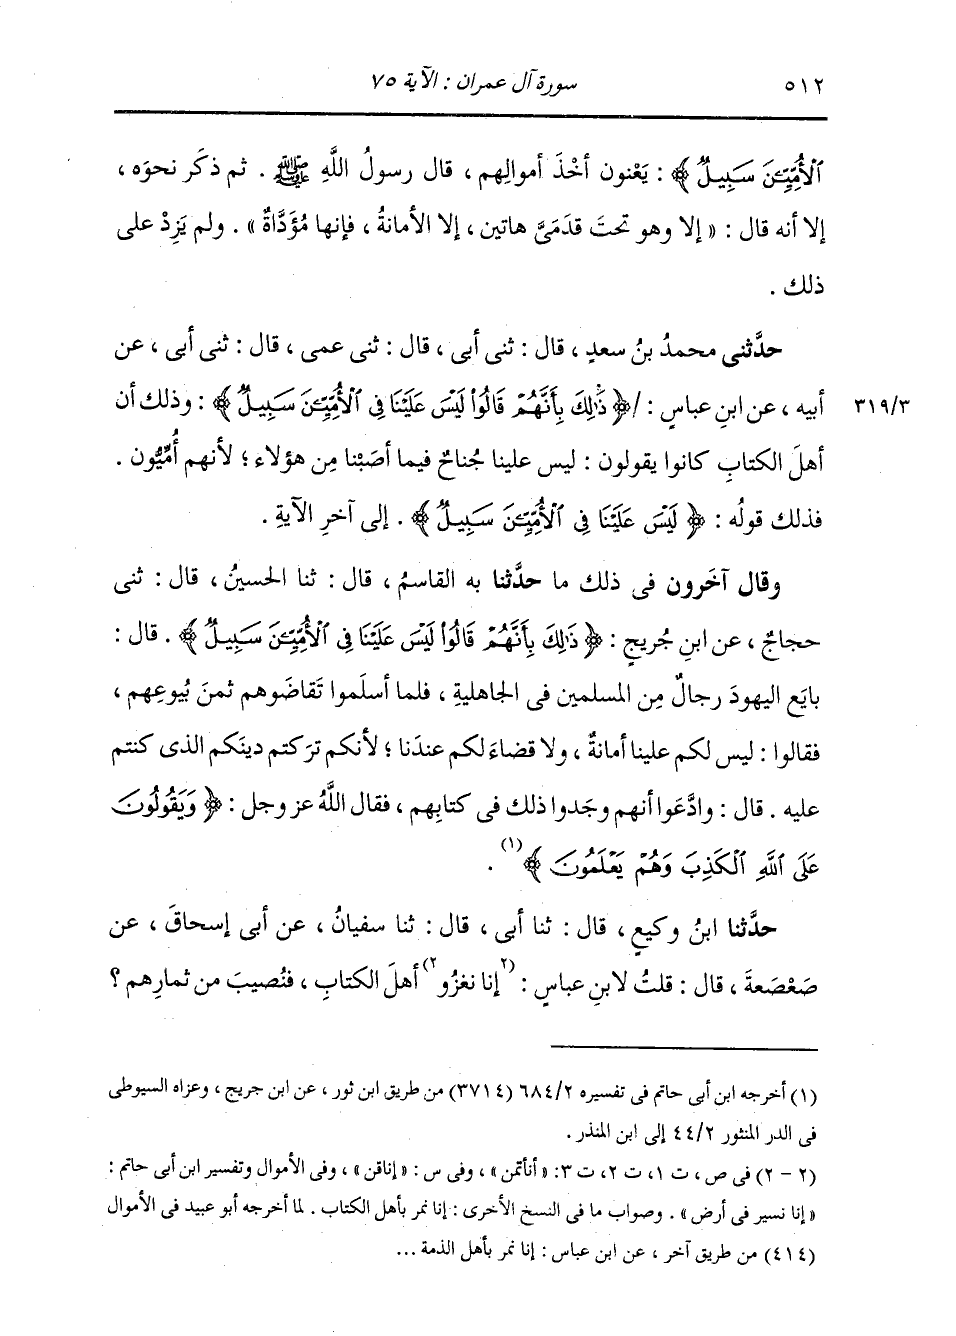 ٥١٢ سورة آل عمران : الآية ٧٥
ٱلْأُمِّيِّـۧنَ سَبِيلٌ﴾ : يَعْنون أخْذَ أموالِهم ، قال رسولُ اللَّهِ ﷺ . ثم ذكَر نحوَه ،
إلا أنه قال : « إلا وهو تحتَ قدَمَىَّ هاتين ، إلا الأمانةُ ، فإنها مُؤَدَّاةٌ » . ولم يَزِدْ على
ذلك .
حدَّثنى محمدُ بنُ سعدٍ ، قال : ثنى أبى ، قال : ثنى عمى ، قال : ثنى أبى ، عن
٣١٩/٣ أبيه ، عن ابنِ عباسٍ : /﴿ذَٰلِكَ بِأَنَّهُمْ قَالُوا۟ لَيْسَ عَلَيْنَا فِى ٱلْأُمِّيِّـۧنَ سَبِيلٌ﴾ : وذلك أن
أهلَ الكتابِ كانوا يقولون : ليس علينا جُناحٌ فيما أصَبْنا مِن هؤلاء ؛ لأنهم أُمِّيُّون .
فذلك قولُه : ﴿لَيْسَ عَلَيْنَا فِى ٱلْأُمِّيِّـۧنَ سَبِيلٌ﴾ . إلى آخرِ الآيةِ .
وقال آخَرون فى ذلك ما حدَّثنا به القاسمُ ، قال : ثنا الحسينُ ، قال : ثنى
حجاجٌ ، عن ابنِ جُريجٍ : ﴿ذَٰلِكَ بِأَنَّهُمْ قَالُوا۟ لَيْسَ عَلَيْنَا فِى ٱلْأُمِّيِّـۧنَ سَبِيلٌ﴾ . قال :
بايَع اليهودَ رجالٌ مِن المسلمين فى الجاهليةِ ، فلما أسلَموا تَقاضَوهم ثمنَ بُيوعِهم ،
فقالوا : ليس لكم علينا أمانةٌ ، ولا قضاءَ لكم عندَنا ؛ لأنكم ترَكتم دينَكم الذى كنتم
عليه . قال : وادَّعَوا أنهم وجَدوا ذلك فى كتابِهم ، فقال اللَّهُ عز وجل : ﴿وَيَقُولُونَ
عَلَى ٱللَّهِ ٱلْكَذِبَ وَهُمْ يَعْلَمُونَ﴾(١) .
حدَّثنا ابنُ وكيعٍ ، قال : ثنا أبى ، قال : ثنا سفيانُ ، عن أبى إسحاقَ ، عن
صَعْصَعةَ ، قال : قلتُ لابنِ عباسٍ : (٢إنا نغزُو٢) أهلَ الكتابِ ، فنُصيبَ من ثمارِهم ؟
(١) أخرجه ابن أبى حاتم فى تفسيره ٦٨٤/٢ (٣٧١٤) من طريق ابن ثور ، عن ابن جريج ، وعزاه السيوطى
فى الدر المنثور ٤٤/٢ إلى ابن المنذر .
(٢ - ٢) فى ص ، ت ١، ت ٢، ت ٣: « أنأتمن » ، وفى س : « إناقن » ، وفى الأموال وتفسير ابن أبى حاتم :
« إنا نسير فى أرض » . وصواب ما فى النسخ الأخرى : إنا نمر بأهل الكتاب . لما أخرجه أبو عبيد فى الأموال
(٤١٤) من طريق آخر ، عن ابن عباس : إنا نمر بأهل الذمة ...